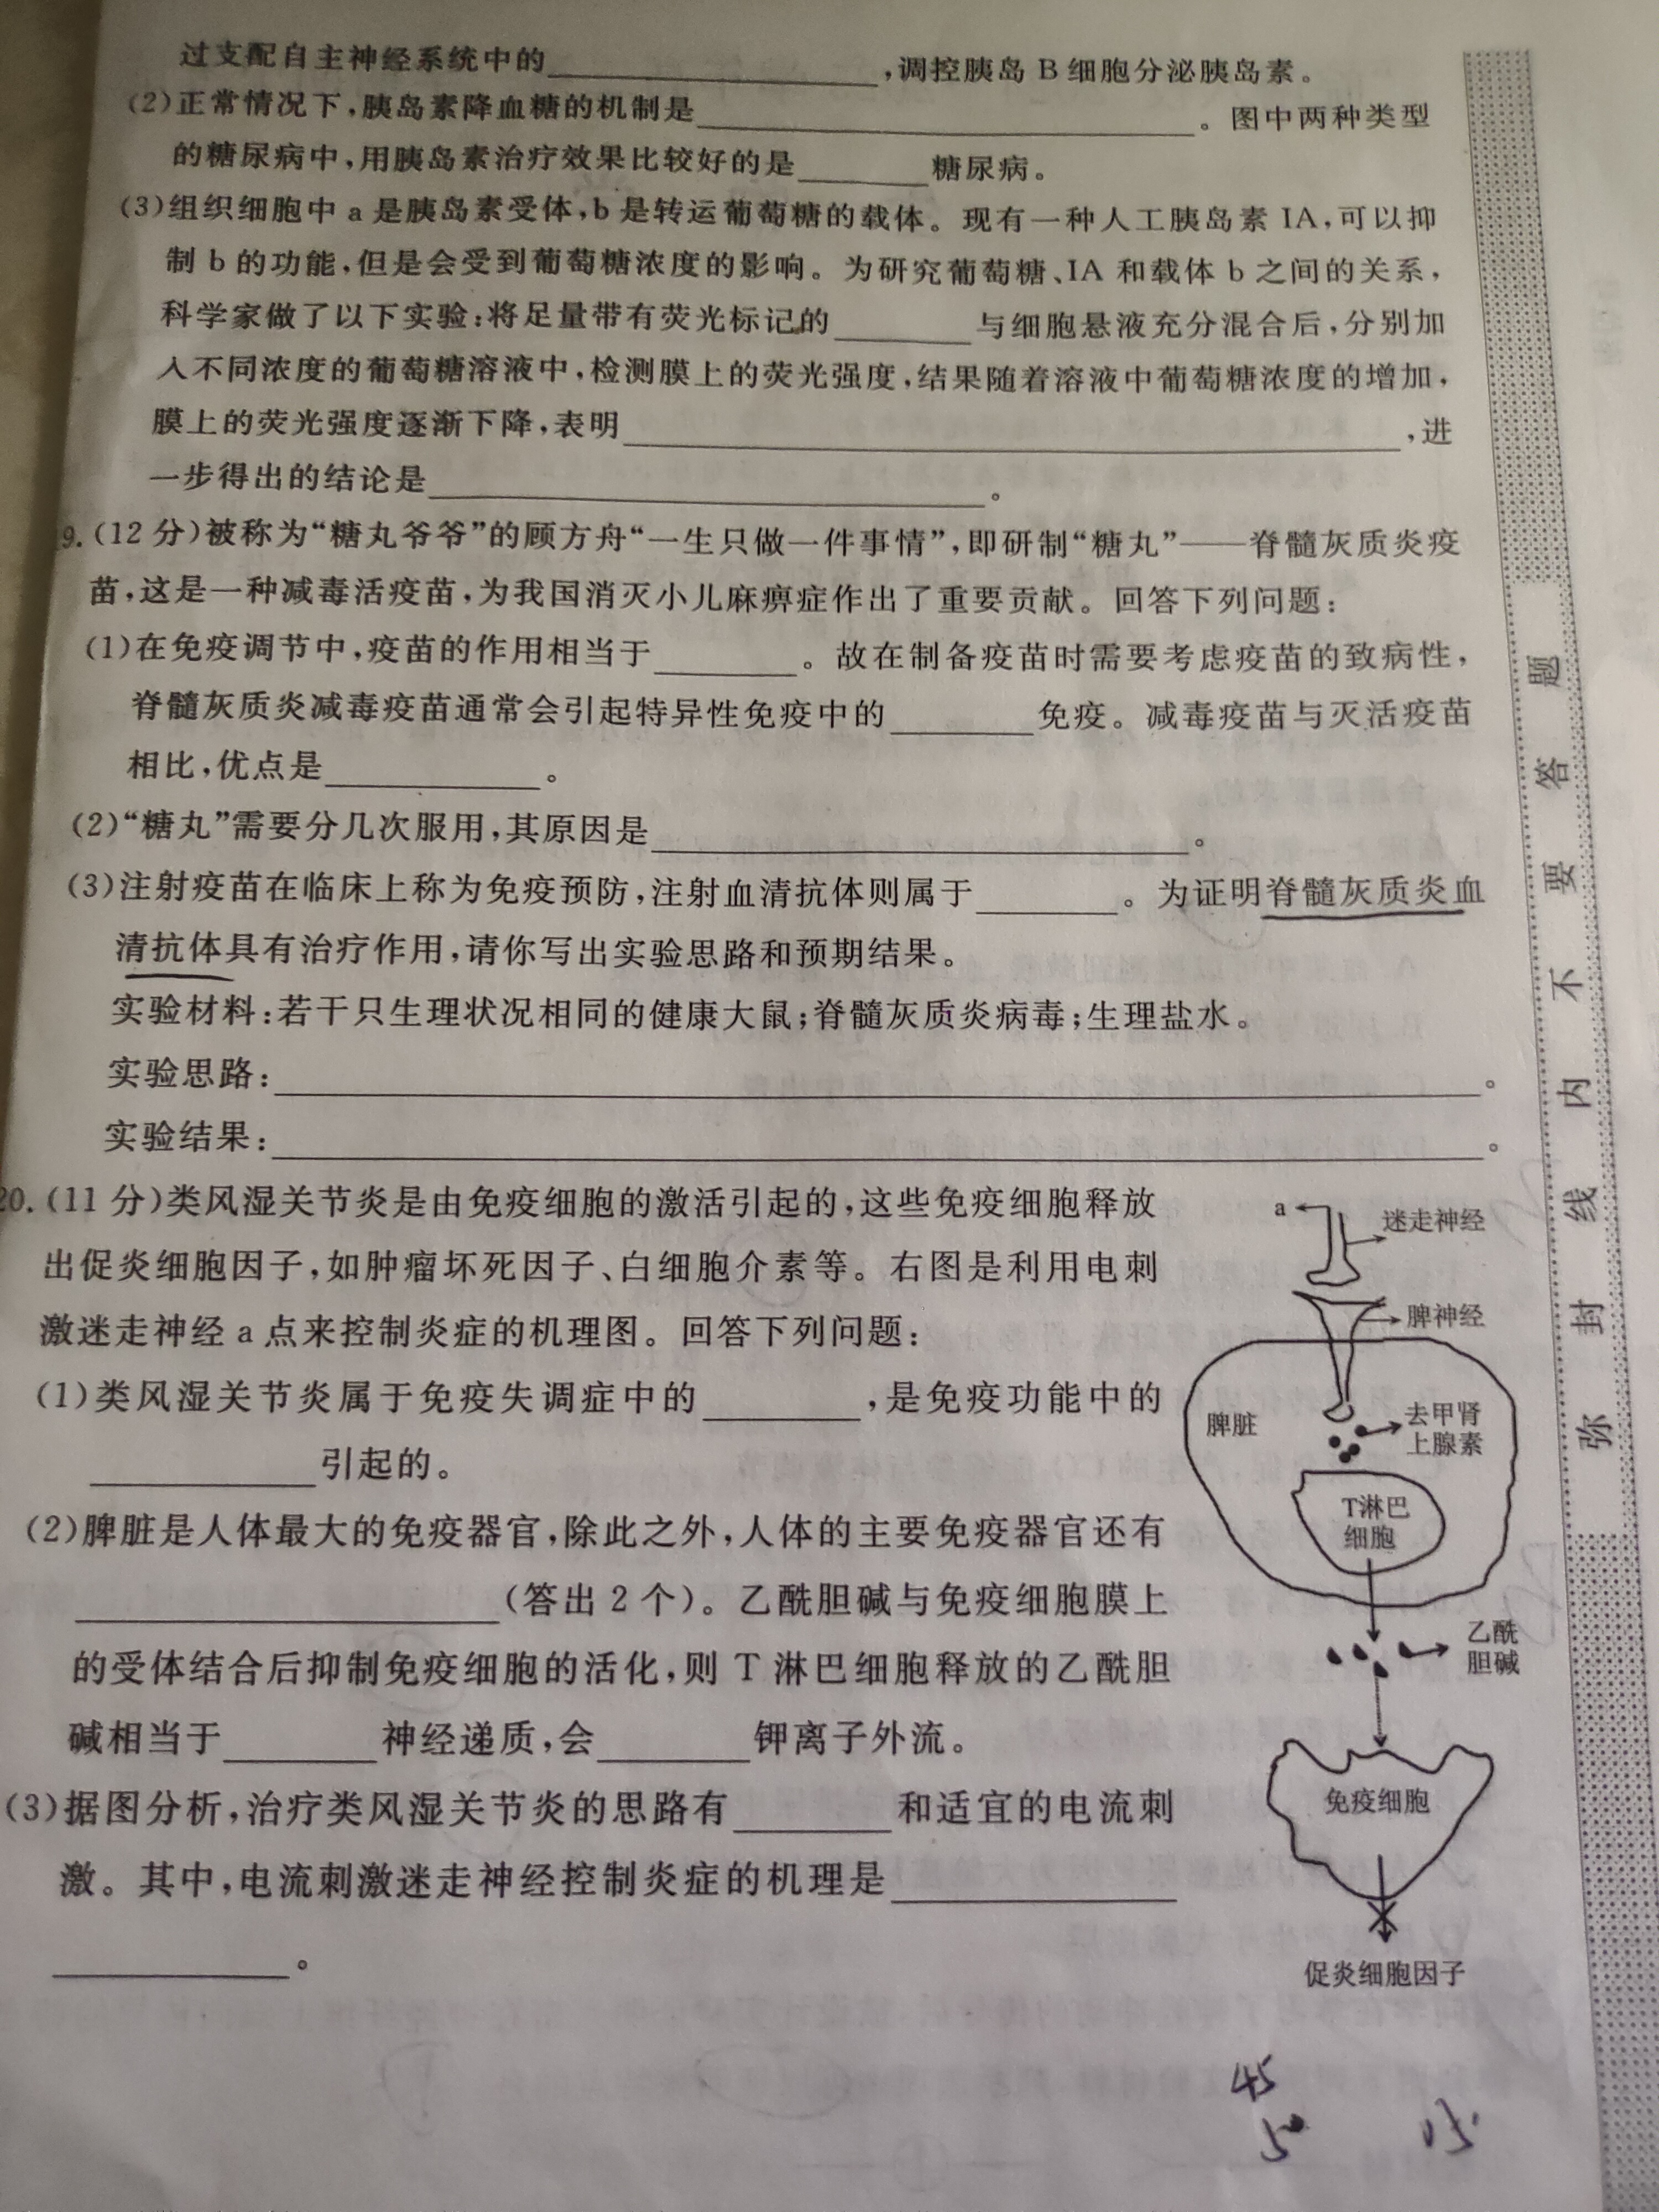 过支配自主神经系统中的____________,调控胰岛B细胞分泌胰岛素。
(2)正常情况下,胰岛素降血糖的机制是____________________。图中两种类型
的糖尿病中,用胰岛素治疗效果比较好的是______糖尿病。
(3)组织细胞中a是胰岛素受体,b是转运葡萄糖的载体。现有一种人工胰岛素IA,可以抑
制b的功能,但是会受到葡萄糖浓度的影响。为研究葡萄糖、IA和载体b之间的关系,
科学家做了以下实验:将足量带有荧光标记的______与细胞悬液充分混合后,分别加
入不同浓度的葡萄糖溶液中,检测膜上的荧光强度,结果随着溶液中葡萄糖浓度的增加,
膜上的荧光强度逐渐下降,表明______________________________,进
一步得出的结论是______________________。
9.(12分)被称为“糖丸爷爷”的顾方舟“一生只做一件事情”,即研制“糖丸”——脊髓灰质炎疫
苗,这是一种减毒活疫苗,为我国消灭小儿麻痹症作出了重要贡献。回答下列问题:
(1)在免疫调节中,疫苗的作用相当于______。故在制备疫苗时需要考虑疫苗的致病性,
脊髓灰质炎减毒疫苗通常会引起特异性免疫中的______免疫。减毒疫苗与灭活疫苗
相比,优点是________。
(2)“糖丸”需要分几次服用,其原因是____________________。
(3)注射疫苗在临床上称为免疫预防,注射血清抗体则属于______。为证明脊髓灰质炎血
清抗体具有治疗作用,请你写出实验思路和预期结果。
实验材料:若干只生理状况相同的健康大鼠;脊髓灰质炎病毒;生理盐水。
实验思路:________________________________________。
实验结果:________________________________________。
20.(11分)类风湿关节炎是由免疫细胞的激活引起的,这些免疫细胞释放
出促炎细胞因子,如肿瘤坏死因子、白细胞介素等。右图是利用电刺
激迷走神经a点来控制炎症的机理图。回答下列问题:
(1)类风湿关节炎属于免疫失调症中的______,是免疫功能中的
________引起的。
(2)脾脏是人体最大的免疫器官,除此之外,人体的主要免疫器官还有
________________(答出2个)。乙酰胆碱与免疫细胞膜上
的受体结合后抑制免疫细胞的活化,则T淋巴细胞释放的乙酰胆
碱相当于______神经递质,会______钾离子外流。
(3)据图分析,治疗类风湿关节炎的思路有______和适宜的电流刺
激。其中,电流刺激迷走神经控制炎症的机理是____________
________。
a
迷走神经
脾神经
脾脏
去甲肾
上腺素
T淋巴
细胞
乙酰
胆碱
免疫细胞
促炎细胞因子
45
题
答
要
不
内
线
封
弥